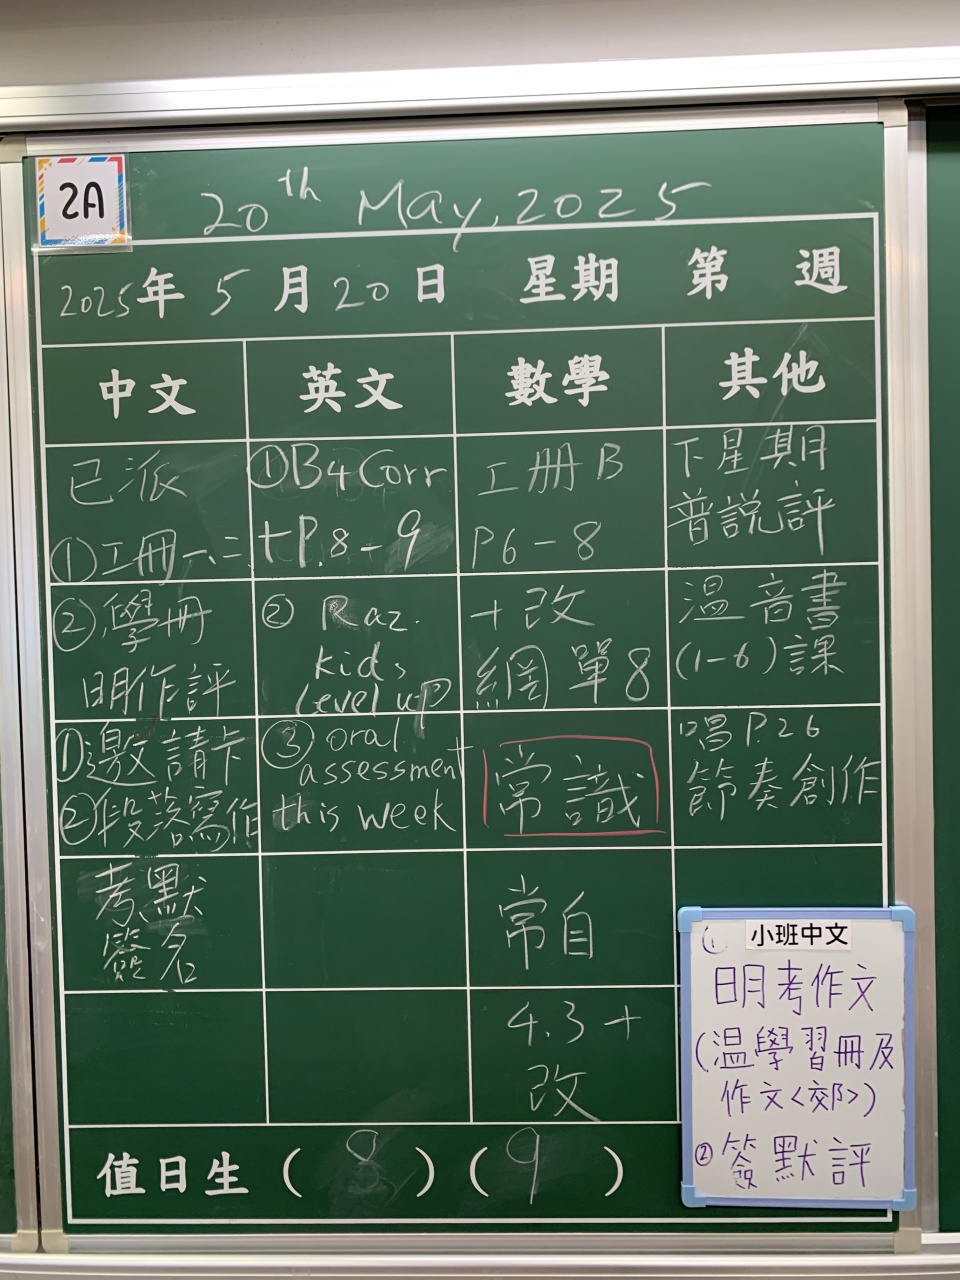 2A
20th May, 2025
2025年 5月20日 星期 第 週
中文
英文
數學
其他
已派
①工冊一、二
②學冊
明作評
①邀請卡
②段落寫作
考默
簽名
①B4 Corr
+P.8-9
② Raz.
kids
level up
③ oral
assessment
this week
工冊B
P6-8
+改
網單8
常識
常自
4.3+
改
下星期
普說評
溫音書
(1-6)課
唱P.26
節奏創作
小班中文
①
明考作文
(溫學習冊及
作文<郊>)
②簽默評
值日生 (8) (9)